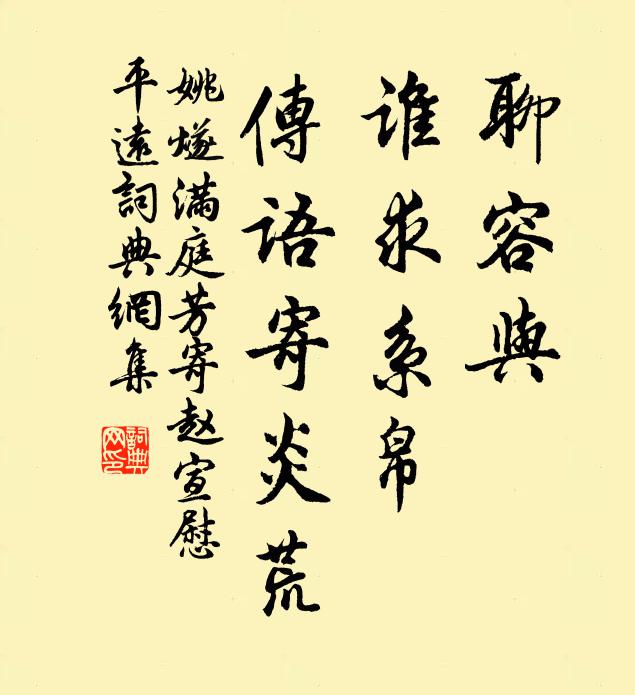 聊容與
誰求系帛
傳語寄炎荒
姚燧满庭芳寄赵宣慰
平遠詞典網集
詞典网印